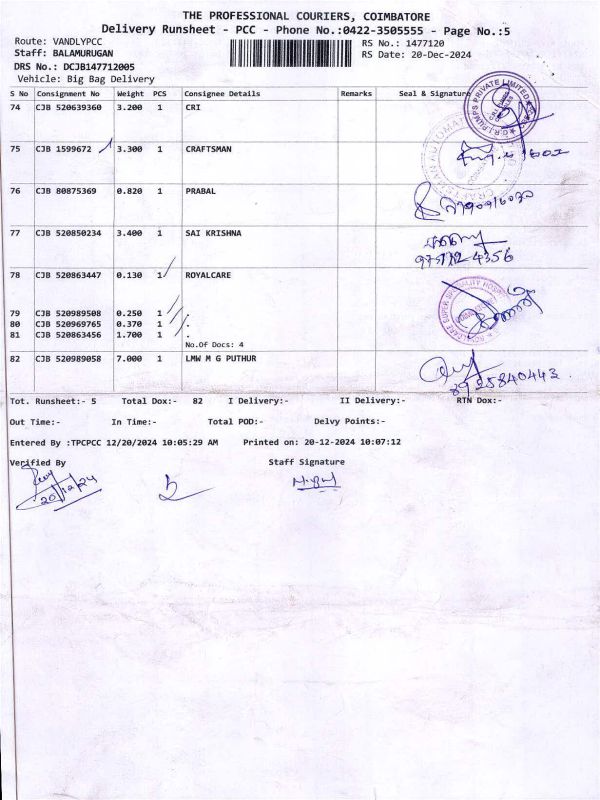 THE PROFESSIONAL COURIERS, COIMBATORE
Delivery Runsheet - PCC - Phone No.:0422-3505555 - Page No.:5
Route: VANDLYPCC
RS No.: 1477120
Staff: BALAMURUGAN
RS Date: 20-Dec-2024
DRS No.: DCJB147712005
Vehicle: Big Bag Delivery
S No Consignment No Weight PCS Consignee Details Remarks Seal & Signature
74 CJB 520639360 3.200 1 CRI
75 CJB 1599672 3.300 1 CRAFTSMAN
76 CJB 80875369 0.820 1 PRABAL
77 CJB 520850234 3.400 1 SAI KRISHNA
78 CJB 520863447 0.130 1 ROYALCARE
79 CJB 520989508 0.250 1 .
80 CJB 520969765 0.370 1 .
81 CJB 520863456 1.700 1 .
No.Of Docs: 4
82 CJB 520989058 7.000 1 LMW M G PUTHUR
Tot. Runsheet:- 5 Total Dox:- 82 I Delivery:- II Delivery:- RTN Dox:-
Out Time:- In Time:- Total POD:- Delvy Points:-
Entered By :TPCPCC 12/20/2024 10:05:29 AM Printed on: 20-12-2024 10:07:12
Verified By Staff Signature
20/12/24